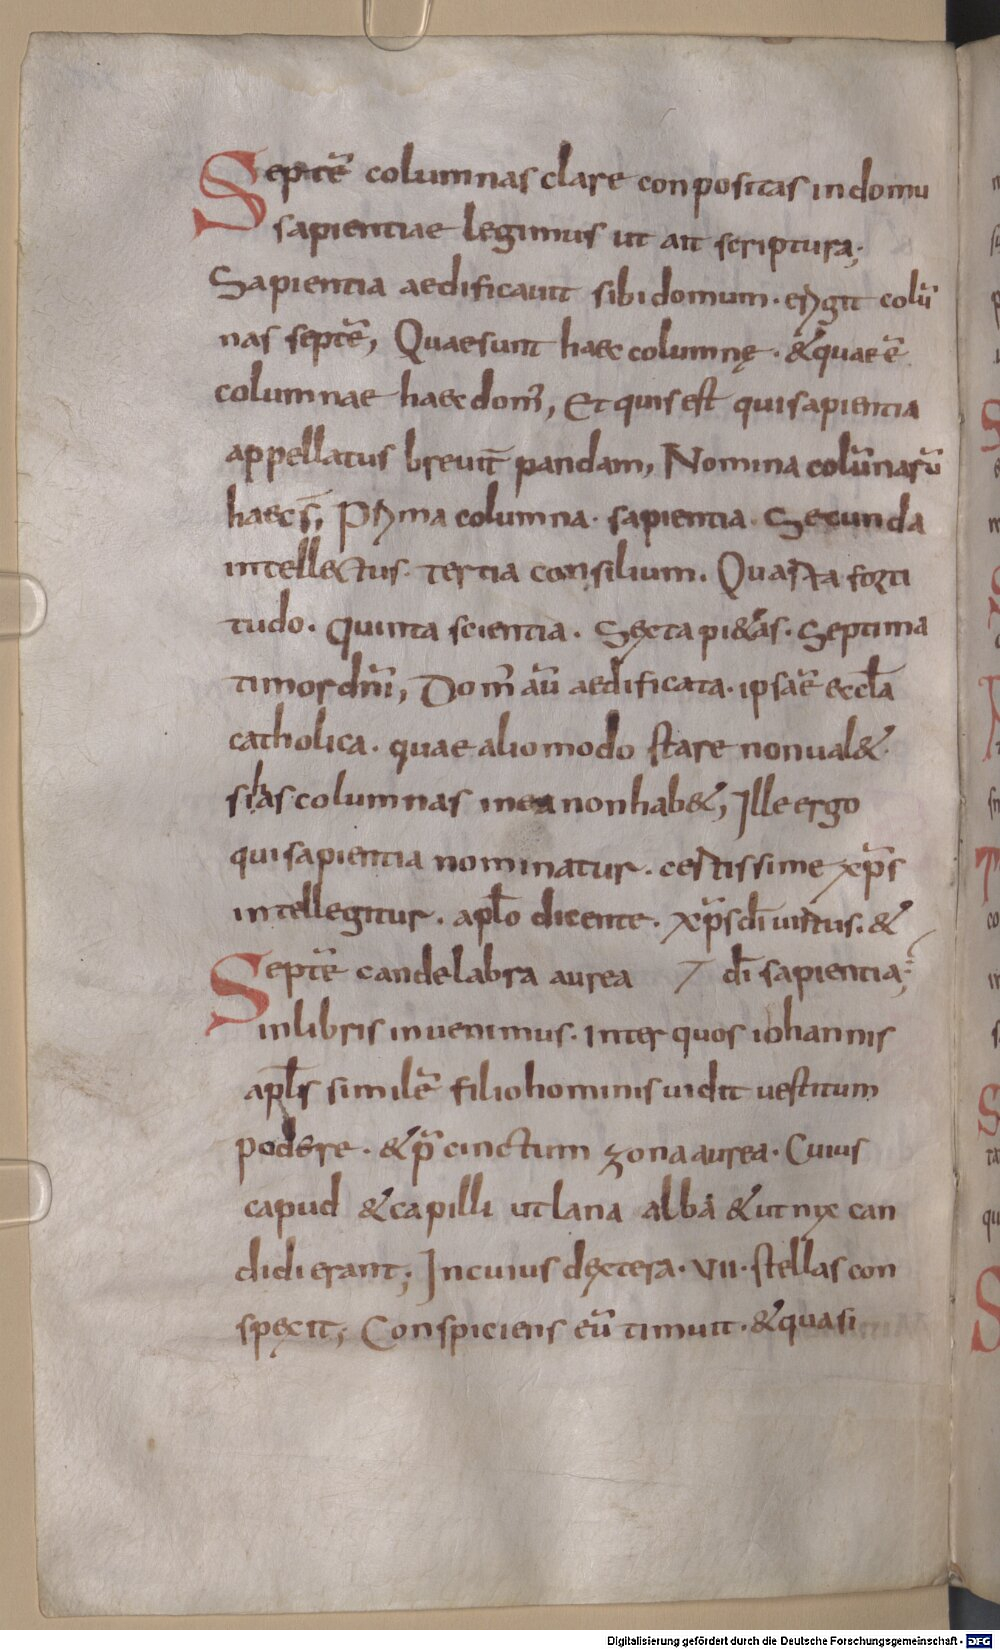 Septē columnas clare conpositas in domu
sapientiae legimus ut ait scriptura;
Sapientia aedificauit sibi domum. erigit colū
nas septē, Quae sunt haec columnę. & quae ē
columnae haec dom̄, Et quis est qui sapientia
appellatus breuit̄ pandam, Nomina colūnarū
haec s̄, Prima columna. sapientia. Secunda
intellectus. tertia consilium. Quarta forti
tudo. quinta scientia. Sexta pi&as. Septima
timor dn̄i, Dom̄ aū aedificata. ipsa ē eccl̄a
catholica. quae alio modo stare non ual&
si has columnas in ea non hab&, Ille ergo
qui sapientia nominatur. certissime xp̄s
intellegitur. apl̄o dicente. xp̄s dī uirtus. &
Septē candelabra aurea / dī sapientia;
in libris inuenimus. Inter quos iohannis
apl̄s similē filio hominis uidit uestitum
podere. & p̄cinctum zona aurea. Cuius
capud & capilli ut lana alba & ut nix can
didi erant; In cuius dextera. VII. stellas con
spexit; Conspiciens eū timuit. & quasi
Digitalisierung gefördert durch die Deutsche Forschungsgemeinschaft - DFG